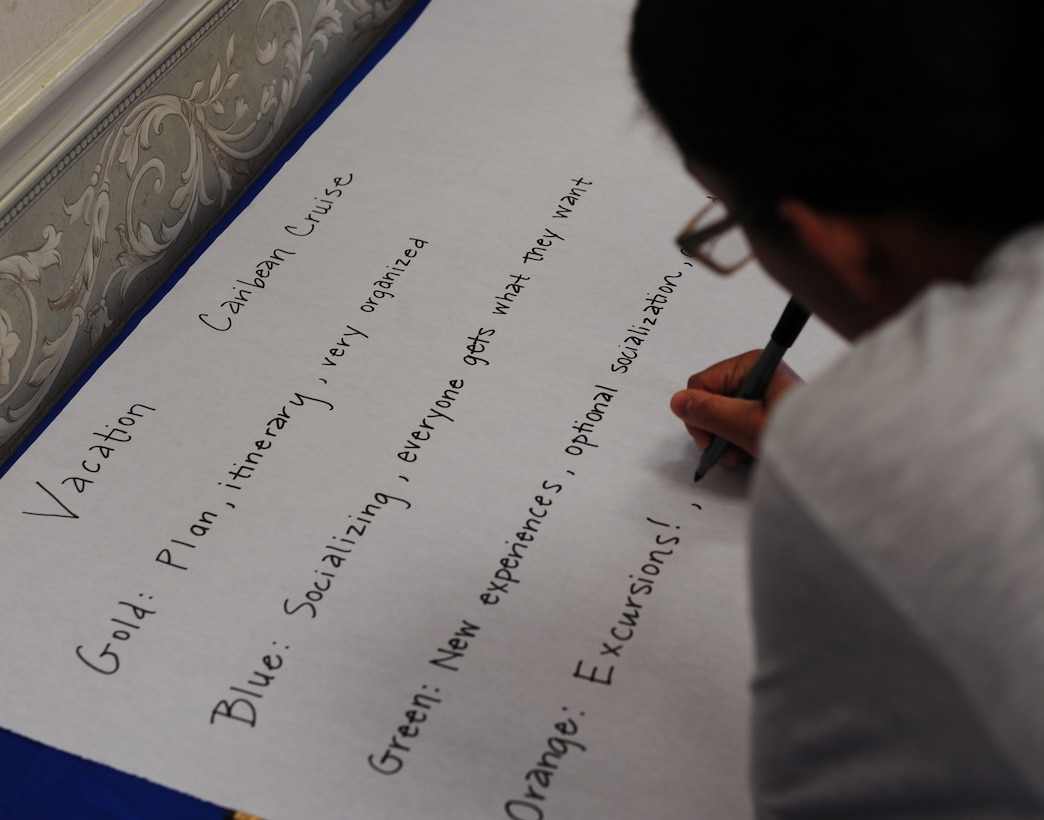 Vacation Caribean Cruise
Gold: Plan, itinerary, very organized
Blue: Socializing, everyone gets what they want
Green: New experiences, optional socialization,
Orange: Excursions! ,